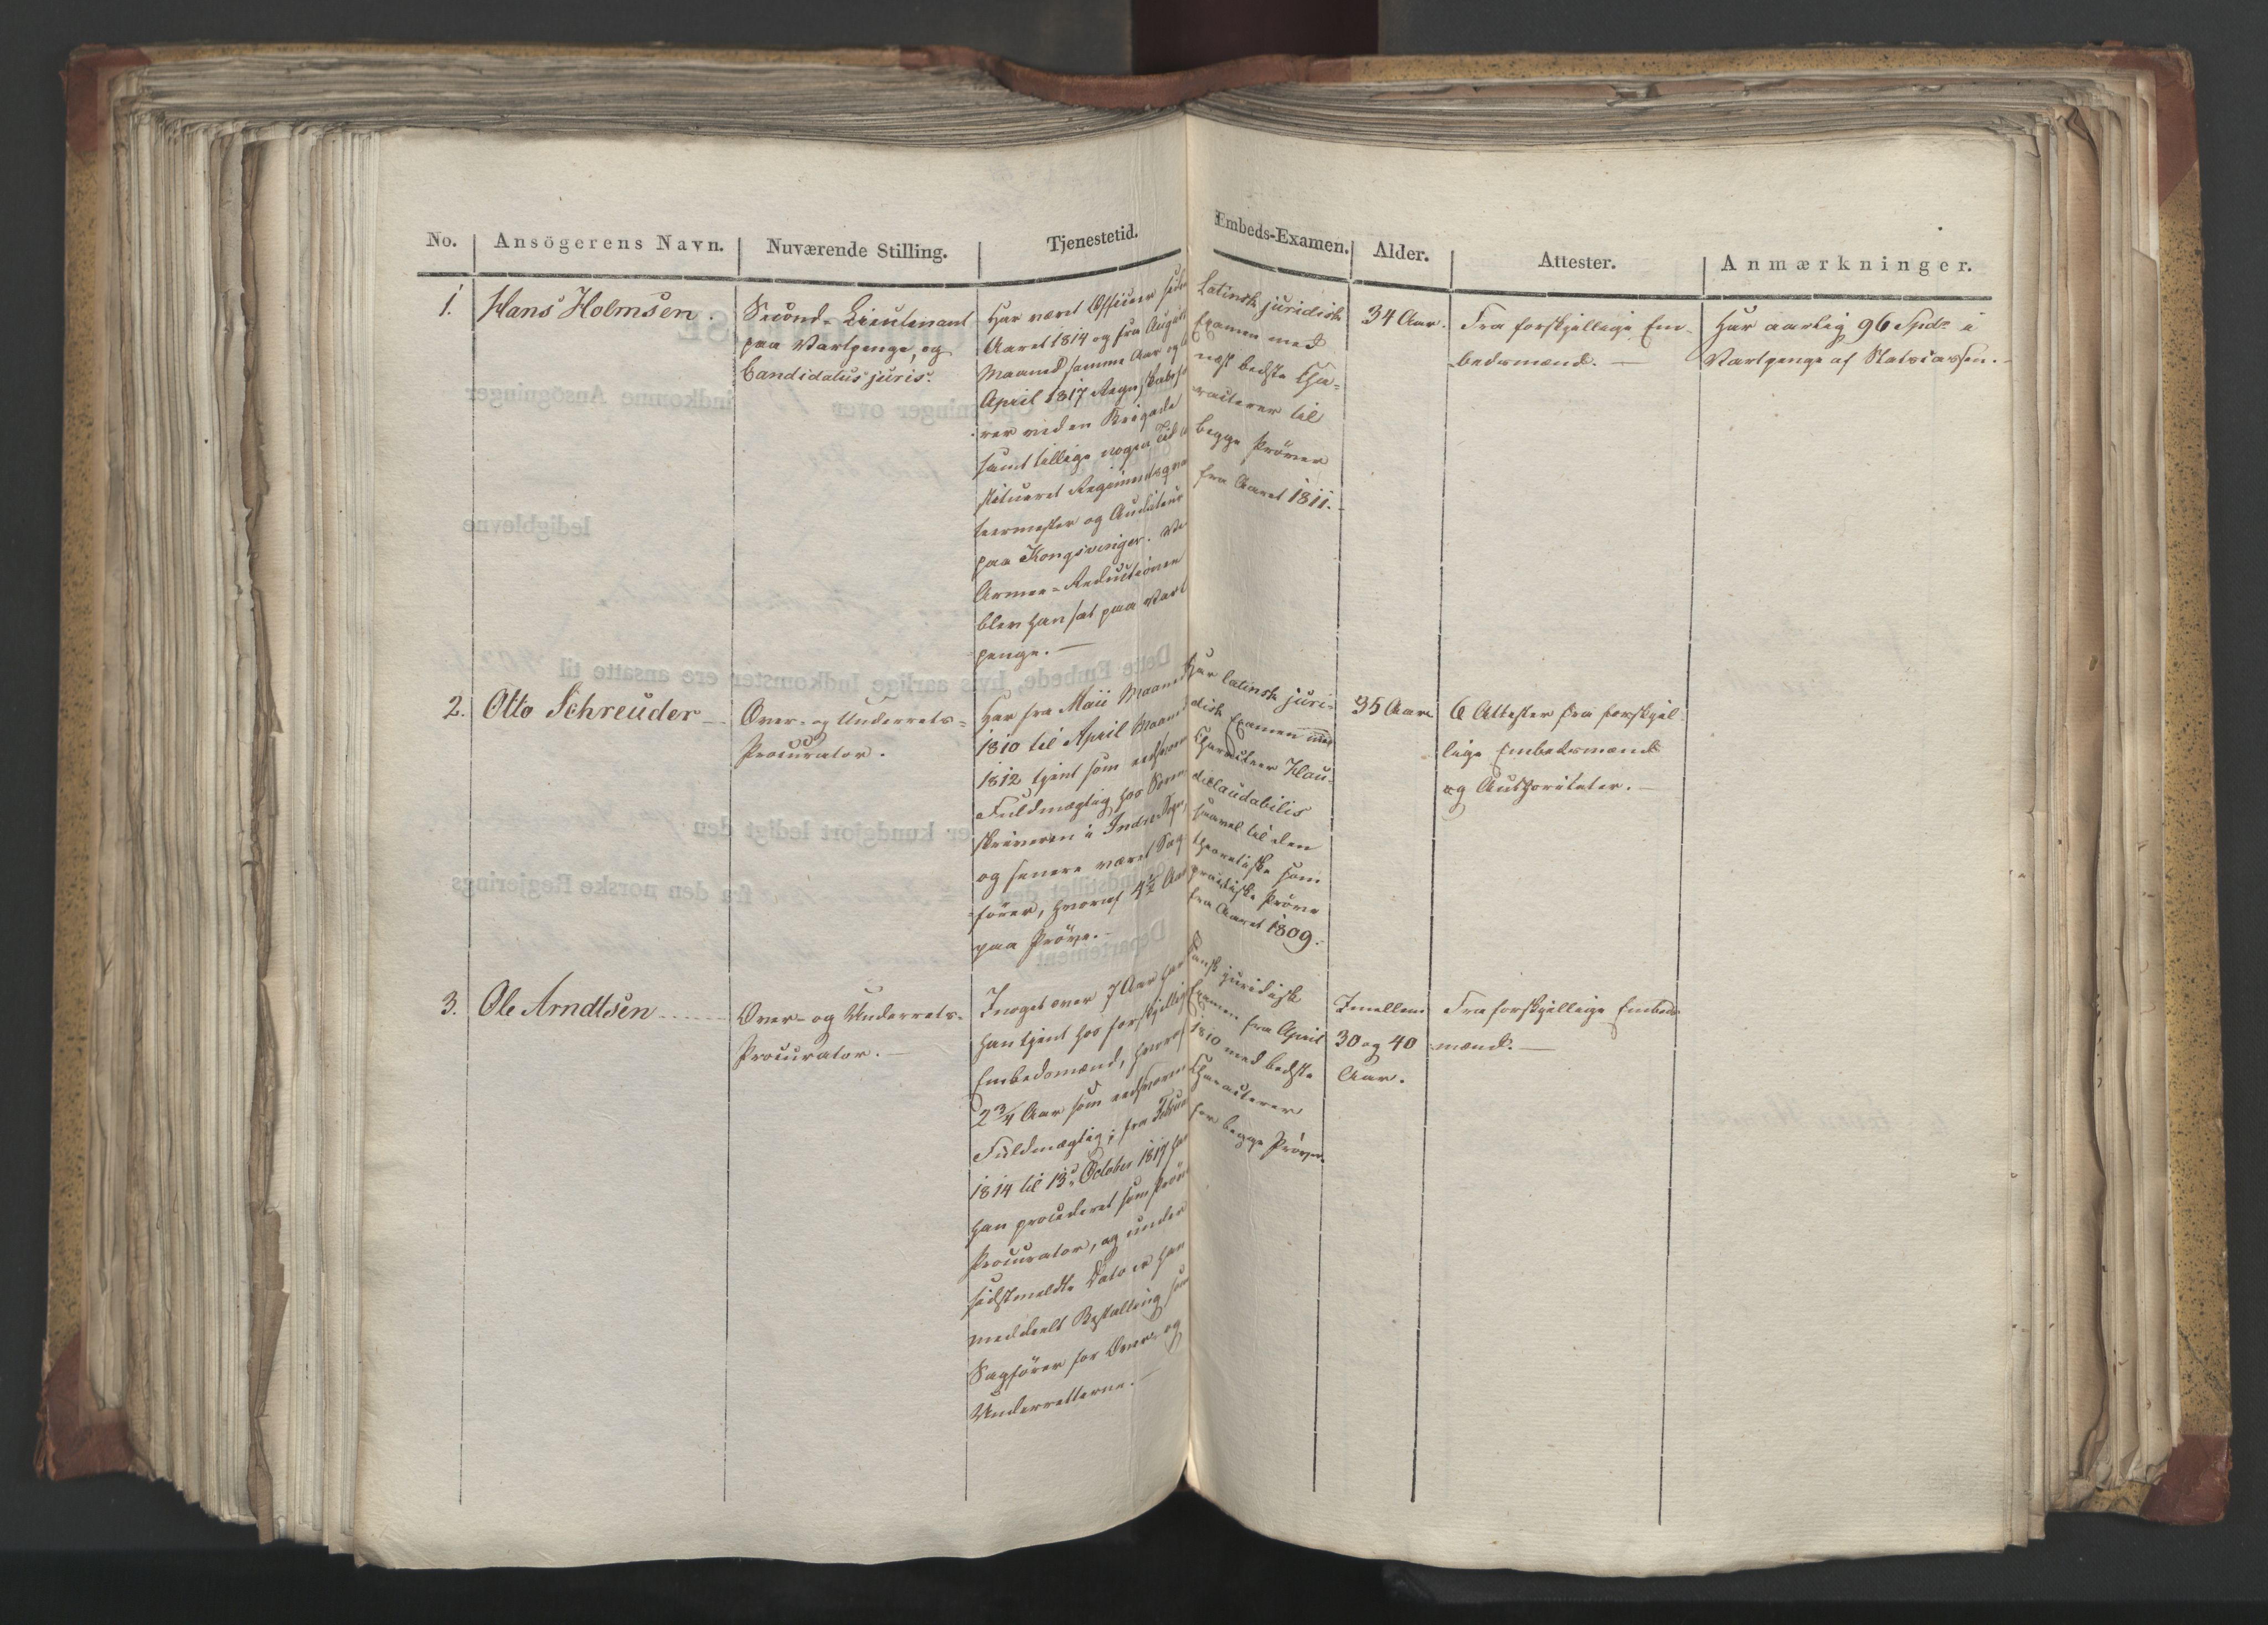 No. Ansögerens Navn. Nuværende Stilling. Tjenestetid. Embeds-Examen. Alder. Attester. Anmærkninger.
1. Hans Holmsen.
Second-Lieutenant
paa Vartpenge, og
Candidatus juris.
Har været Officier siden
Aaret 1814 og fra August
Maaned samme Aar og til
April 1817 Regnskabsfø-
rer ved en Brigade
samt tillige nogen Tid
stitueret Regimentsqvar
teermester og Auditeur
paa Kongsvinger. Ve
Armee-Reductionen
blev han sat paa Vart
penge.
Latinsk juridisk
Examen med
næst bedste Cha-
racterer til
begge Prøver
fra Aaret 1811.
34 Aar.
Fra forskjellige Em-
bedsmænd.
Har aarlig 96 Spd. i
Vartpenge af Statscassen.
2. Otto Schreuder
Over- og Underrets-
Procurator.
Har fra Maii Maaned
1810 til April Maaned
1812 tjent som eedsvoren
Fuldmægtig hos Soren
skriveren i Indre Sogn,
og senere været Sag-
fører, hvoraf 4½ Aar
paa Prøve.
Har latinsk juri-
disk Examen med
Characteer Hau
illaudabilis
saavel til den
theoretiske som
practiske Prøve
fra Aaret 1809.
35 Aar
6 Attester fra forskjel-
lige Embedsmænd
og Authoriteter.
3. Ole Arndtsen
Over- og Underrets-
Procurator.
I noget over 7 Aar har
han tjent hos forskjellige
Embedsmænd, hvoraf
2¾ Aar som eedsvoren
Fuldmægtig; fra Februar
1814 til 13de October 1817 har
han procederet som Prøve
Procurator, og under
sidstmeldte Dato er han
meddeelt Bestalling som
Sagfører for Over- og
Underretterne.
Dansk juridisk
Examen fra April
1810 med bedste
Characterer
for begge Prøver.
Imellem
30 og 40
Aar.
Fra forskjellige Embeds
mænd.